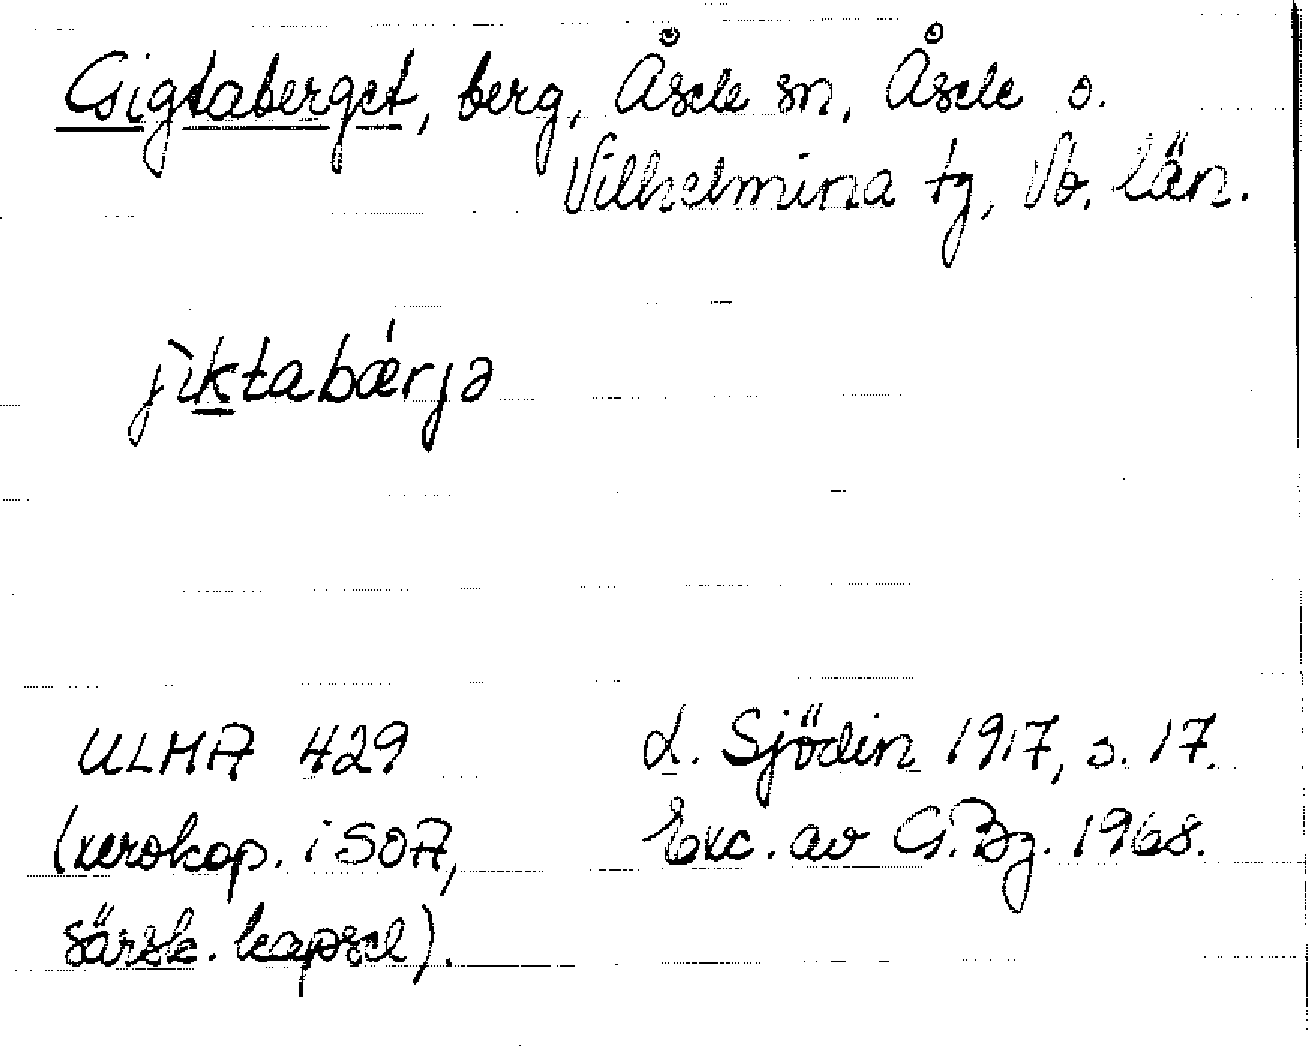 Gigtaberget, berg, Åsele sn, Åsele o.
Vilhelmina tg, Vb. län.
jìktabǽrjə
ULMA 429
(xerokop. i SOA,
särsk. kapsel).
L. Sjödin 1917, s. 17.
Exc. av G. Bg. 1968.